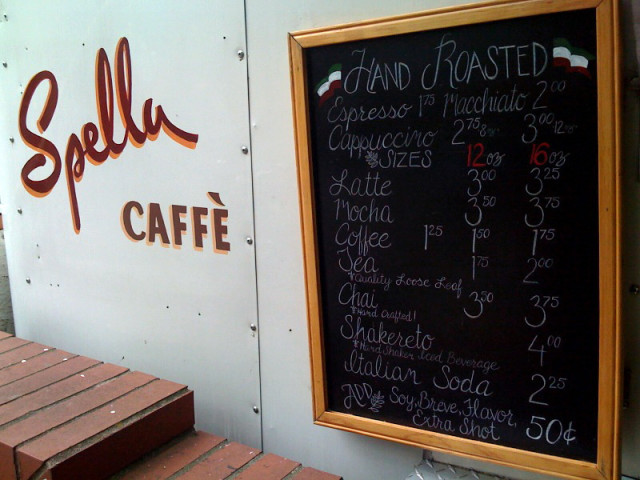 Spella
CAFFÈ
HAND ROASTED
Espresso 1.75 Macchiato 2.00
Cappuccino 2.75 8oz 3.00 12oz
SIZES 12oz 16oz
Latte 3.00 3.25
Mocha 3.50 3.75
Coffee 1.25 1.50 1.75
Tea 1.75 2.00
*Quality Loose Leaf
Chai 3.50 3.75
*Hand Crafted!
Shakereto 4.00
*Hand Shaken Iced Beverage
Italian Soda 2.25
Add Soy, Breve, Flavor,
Extra Shot 50¢